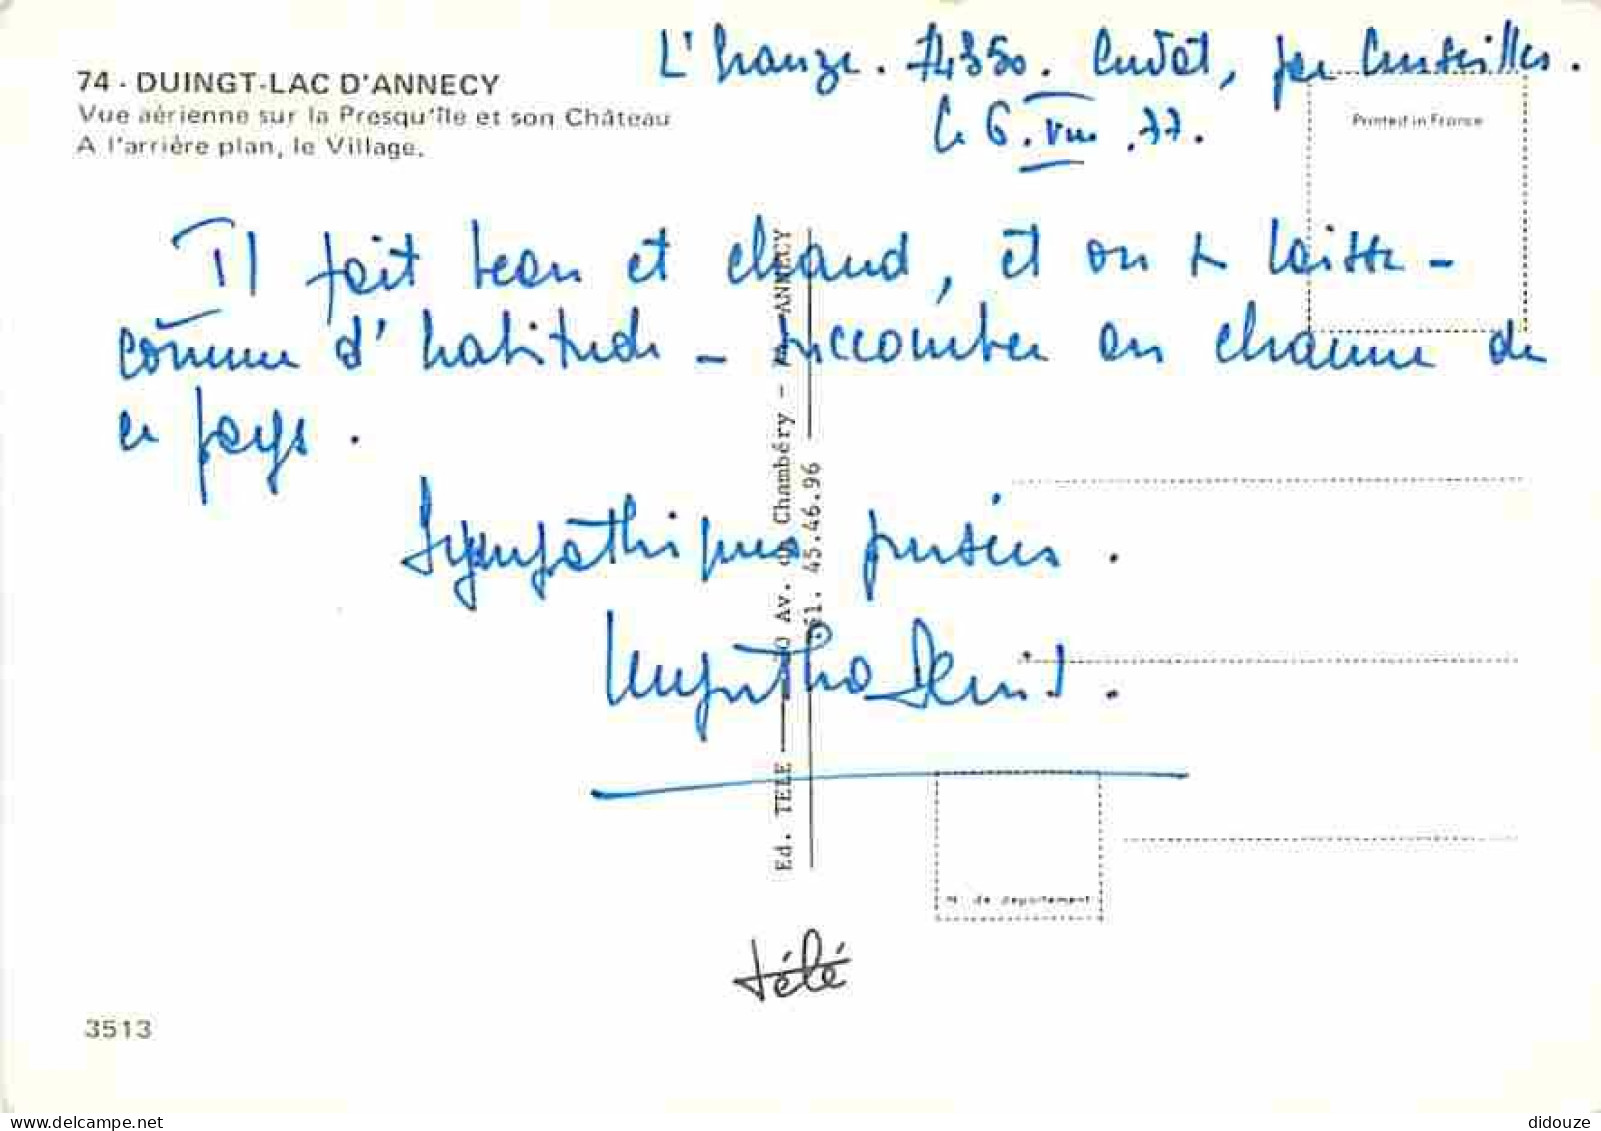 L' 74350. Cudot, par Cruseilles.
Le 6. VIII. 77.
74 - DUINGT-LAC D'ANNECY
Vue aérienne sur la Presqu'île et son Château
A l'arrière plan, le Village.
Printed in France
Il fait beau et chaud, et on se laisse -
comme d'habitude - succomber au charme de
ce pays.
Sympathiques pensées.
Ed. TELE Av. de Chambéry - ANNECY
45.46.96
N° de département
télé
3513
didouze